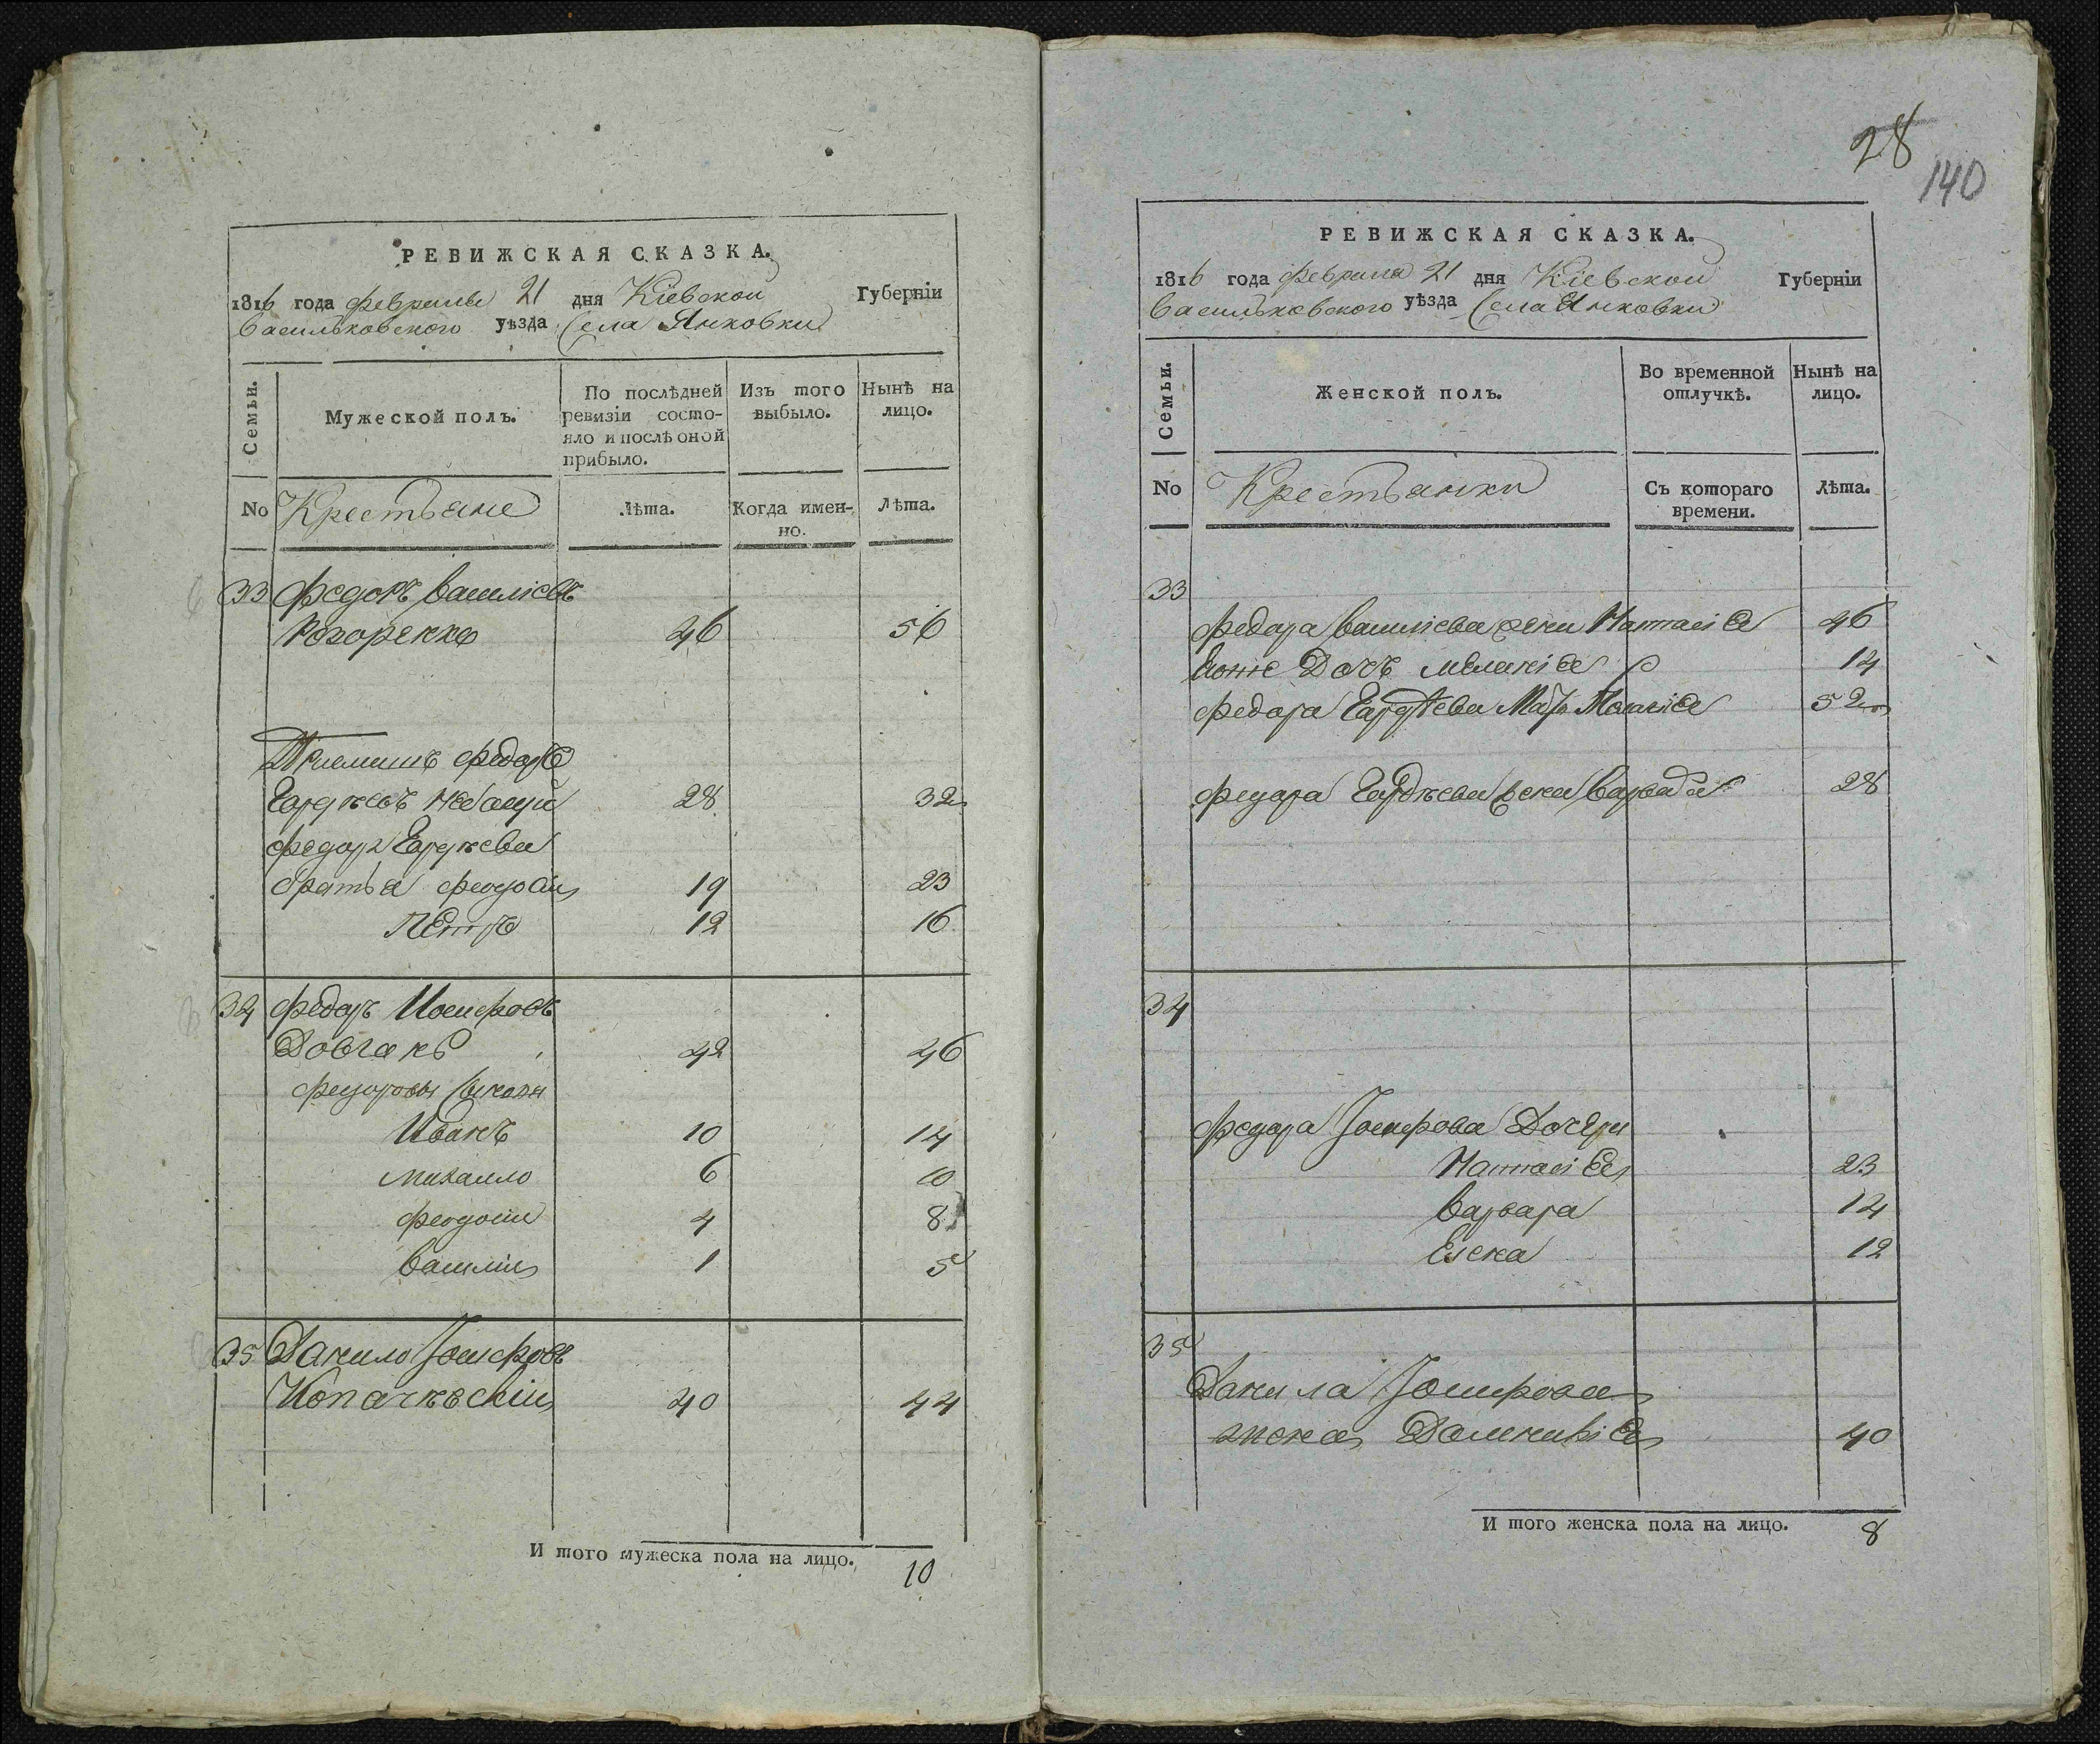 РЕВИЖСКАЯ СКАЗКА.
1816 года февраля 21 дня Кіевской Губерніи
Васильковского уѣзда Села Янковки
Семьи.
Мужеской полъ.
По послѣдней ревизіи состо-
яло и послѣ оной
прибыло.
Изъ того
выбыло.
Нынѣ на
лицо.
No
Крестьяне
Лѣта.
Когда имен-
но.
Лѣта.
33 Федоръ Василіевъ
46 56
Приемышъ Федоръ
28 32
Федора
братья Феодосій 19 23
Петръ 12 16
34 Федоръ Иосифовъ
Довгань 42 46
Федоровы сыновя
Иванъ 10 14
Михайло 6 10
Феодосій 4 8
Василій 1 5
35 Данило Іосифовъ
40 44
И того мужеска пола на лицо. 10
28
140
РЕВИЖСКАЯ СКАЗКА.
1816 года февраля 21 дня Кіевской Губерніи
Васильковского уѣзда Села Янковки
Семьи.
Женской полъ.
Во временной
отлучкѣ.
Нынѣ на
лицо.
No
Крестьянки
Съ котораго
времени.
Лѣта.
33
Федора Василіева жена Наталія 46
дочь Меланія 14
Федора мать 52
Федора жена Варвара 28
34
Федора Іосифова дочери
Наталія 23
Варвара 14
Елена 12
35
Данила Іосифова
жена Домникія 40
И того женска пола на лицо. 8